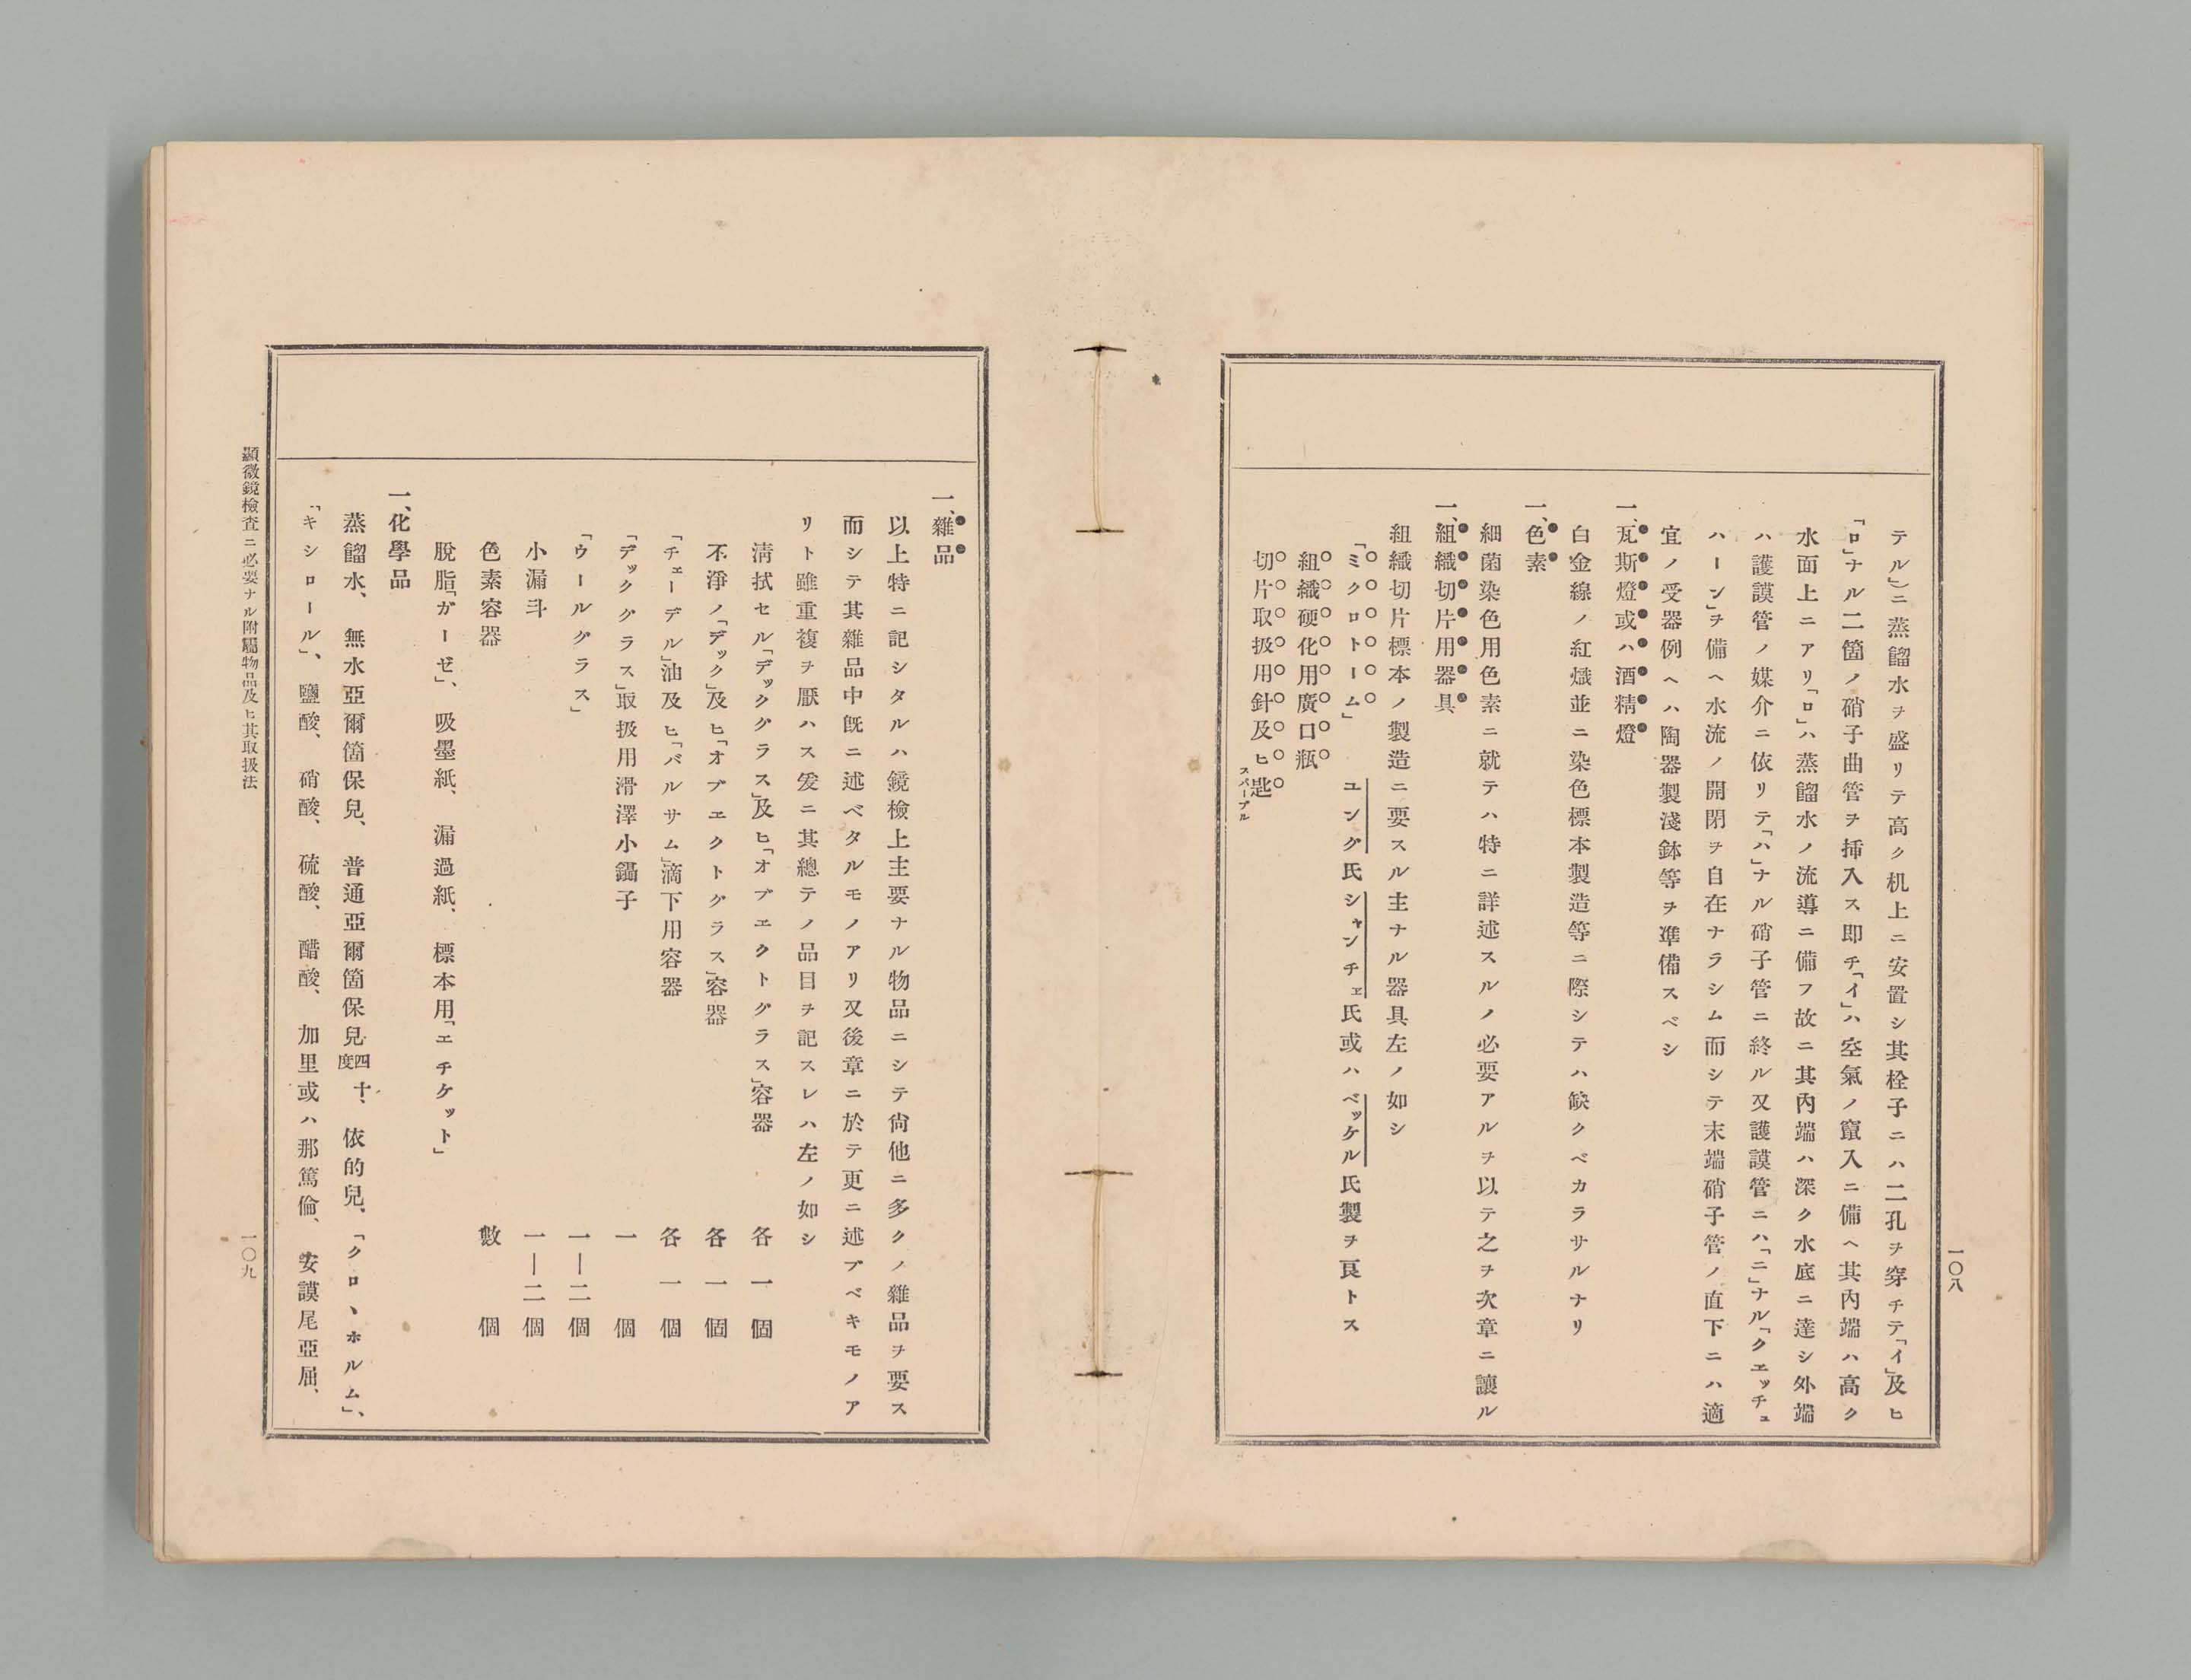 一〇八
テル」)ニ蒸餾水ヲ盛リテ高ク机上ニ安置シ其栓子ニハ二孔ヲ穿チテ「イ」及ヒ
「ロ」ナル二箇ノ硝子曲管ヲ挿入ス即チ「イ」ハ空氣ノ竄入ニ備ヘ其内端ハ高ク
水面上ニアリ「ロ」ハ蒸餾水ノ流導ニ備フ故ニ其内端ハ深ク水底ニ達シ外端
ハ護謨管ノ媒介ニ依リテ「ハ」ナル硝子管ニ終ル又護謨管ニハ「ニ」ナル「クエッチュ
ハーン」ヲ備ヘ水流ノ開閉ヲ自在ナラシム而シテ末端硝子管ノ直下ニハ適
宜ノ受器例ヘハ陶器製淺鉢等ヲ準備スベシ
一、瓦斯燈或ハ酒精燈
白金線ノ紅熾並ニ染色標本製造等ニ際シテハ缺クベカラサルナリ
一、色素
細菌染色用色素ニ就テハ特ニ詳述スルノ必要アルヲ以テ之ヲ次章ニ讓ル
一、組織切片用器具
組織切片標本ノ製造ニ要スル主ナル器具左ノ如シ
「ミクロトーム」 ユング氏シャンチェ氏或ハベッケル氏製ヲ良トス
組織硬化用廣口瓶
切片取扱用針及ヒ匙スパーブル
一、雜品
以上特ニ記シタルハ鏡檢上主要ナル物品ニシテ尙他ニ多クノ雜品ヲ要ス
而シテ其雜品中既ニ述ベタルモノアリ又後章ニ於テ更ニ述プベキモノア
リト雖重複ヲ厭ハス爰ニ其總テノ品目ヲ記スレハ左ノ如シ
淸拭セル「デックグラス」及ヒ「オブエクトグラス」容器 各一個
不淨ノ「デック」及ヒ「オブエクトグラス」容器 各一個
「チェーデル」油及ヒ「バルサム」滴下用容器 各一個
「デックグラス」取扱用滑澤小鑷子 一個
「ウールグラス」 一—二個
小漏斗 一—二個
色素容器 數個
脫脂「ガーゼ」、吸墨紙、漏過紙、標本用「エチケット」
一、化學品
蒸餾水、無水亞爾箇保兒、普通亞爾箇保兒四十度、依的兒、「クロヽホルム」、
「キシロール」、鹽酸、硝酸、硫酸、醋酸、加里或ハ那篤倫、安謨尾亞屈、
顯微鏡檢査ニ必要ナル附屬物品及ヒ其取扱法
一〇九